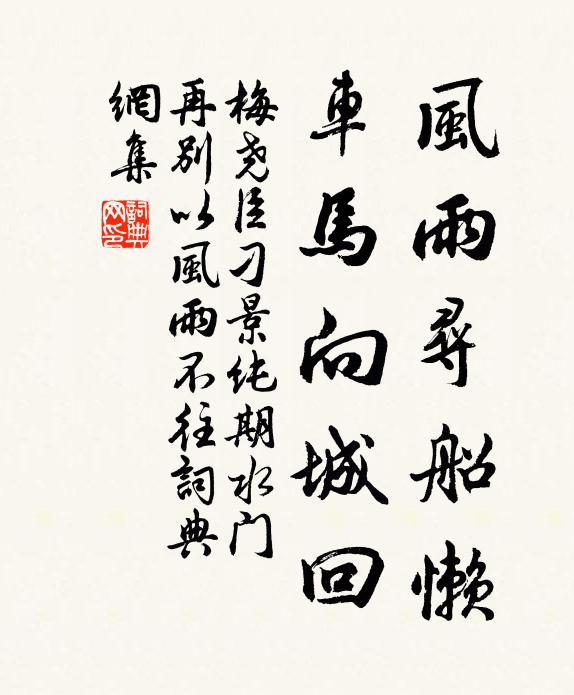 風雨尋船懶
車馬向城回
梅堯臣刁景纯期水门
再别以風雨不往詞典
網集
詞典
网印